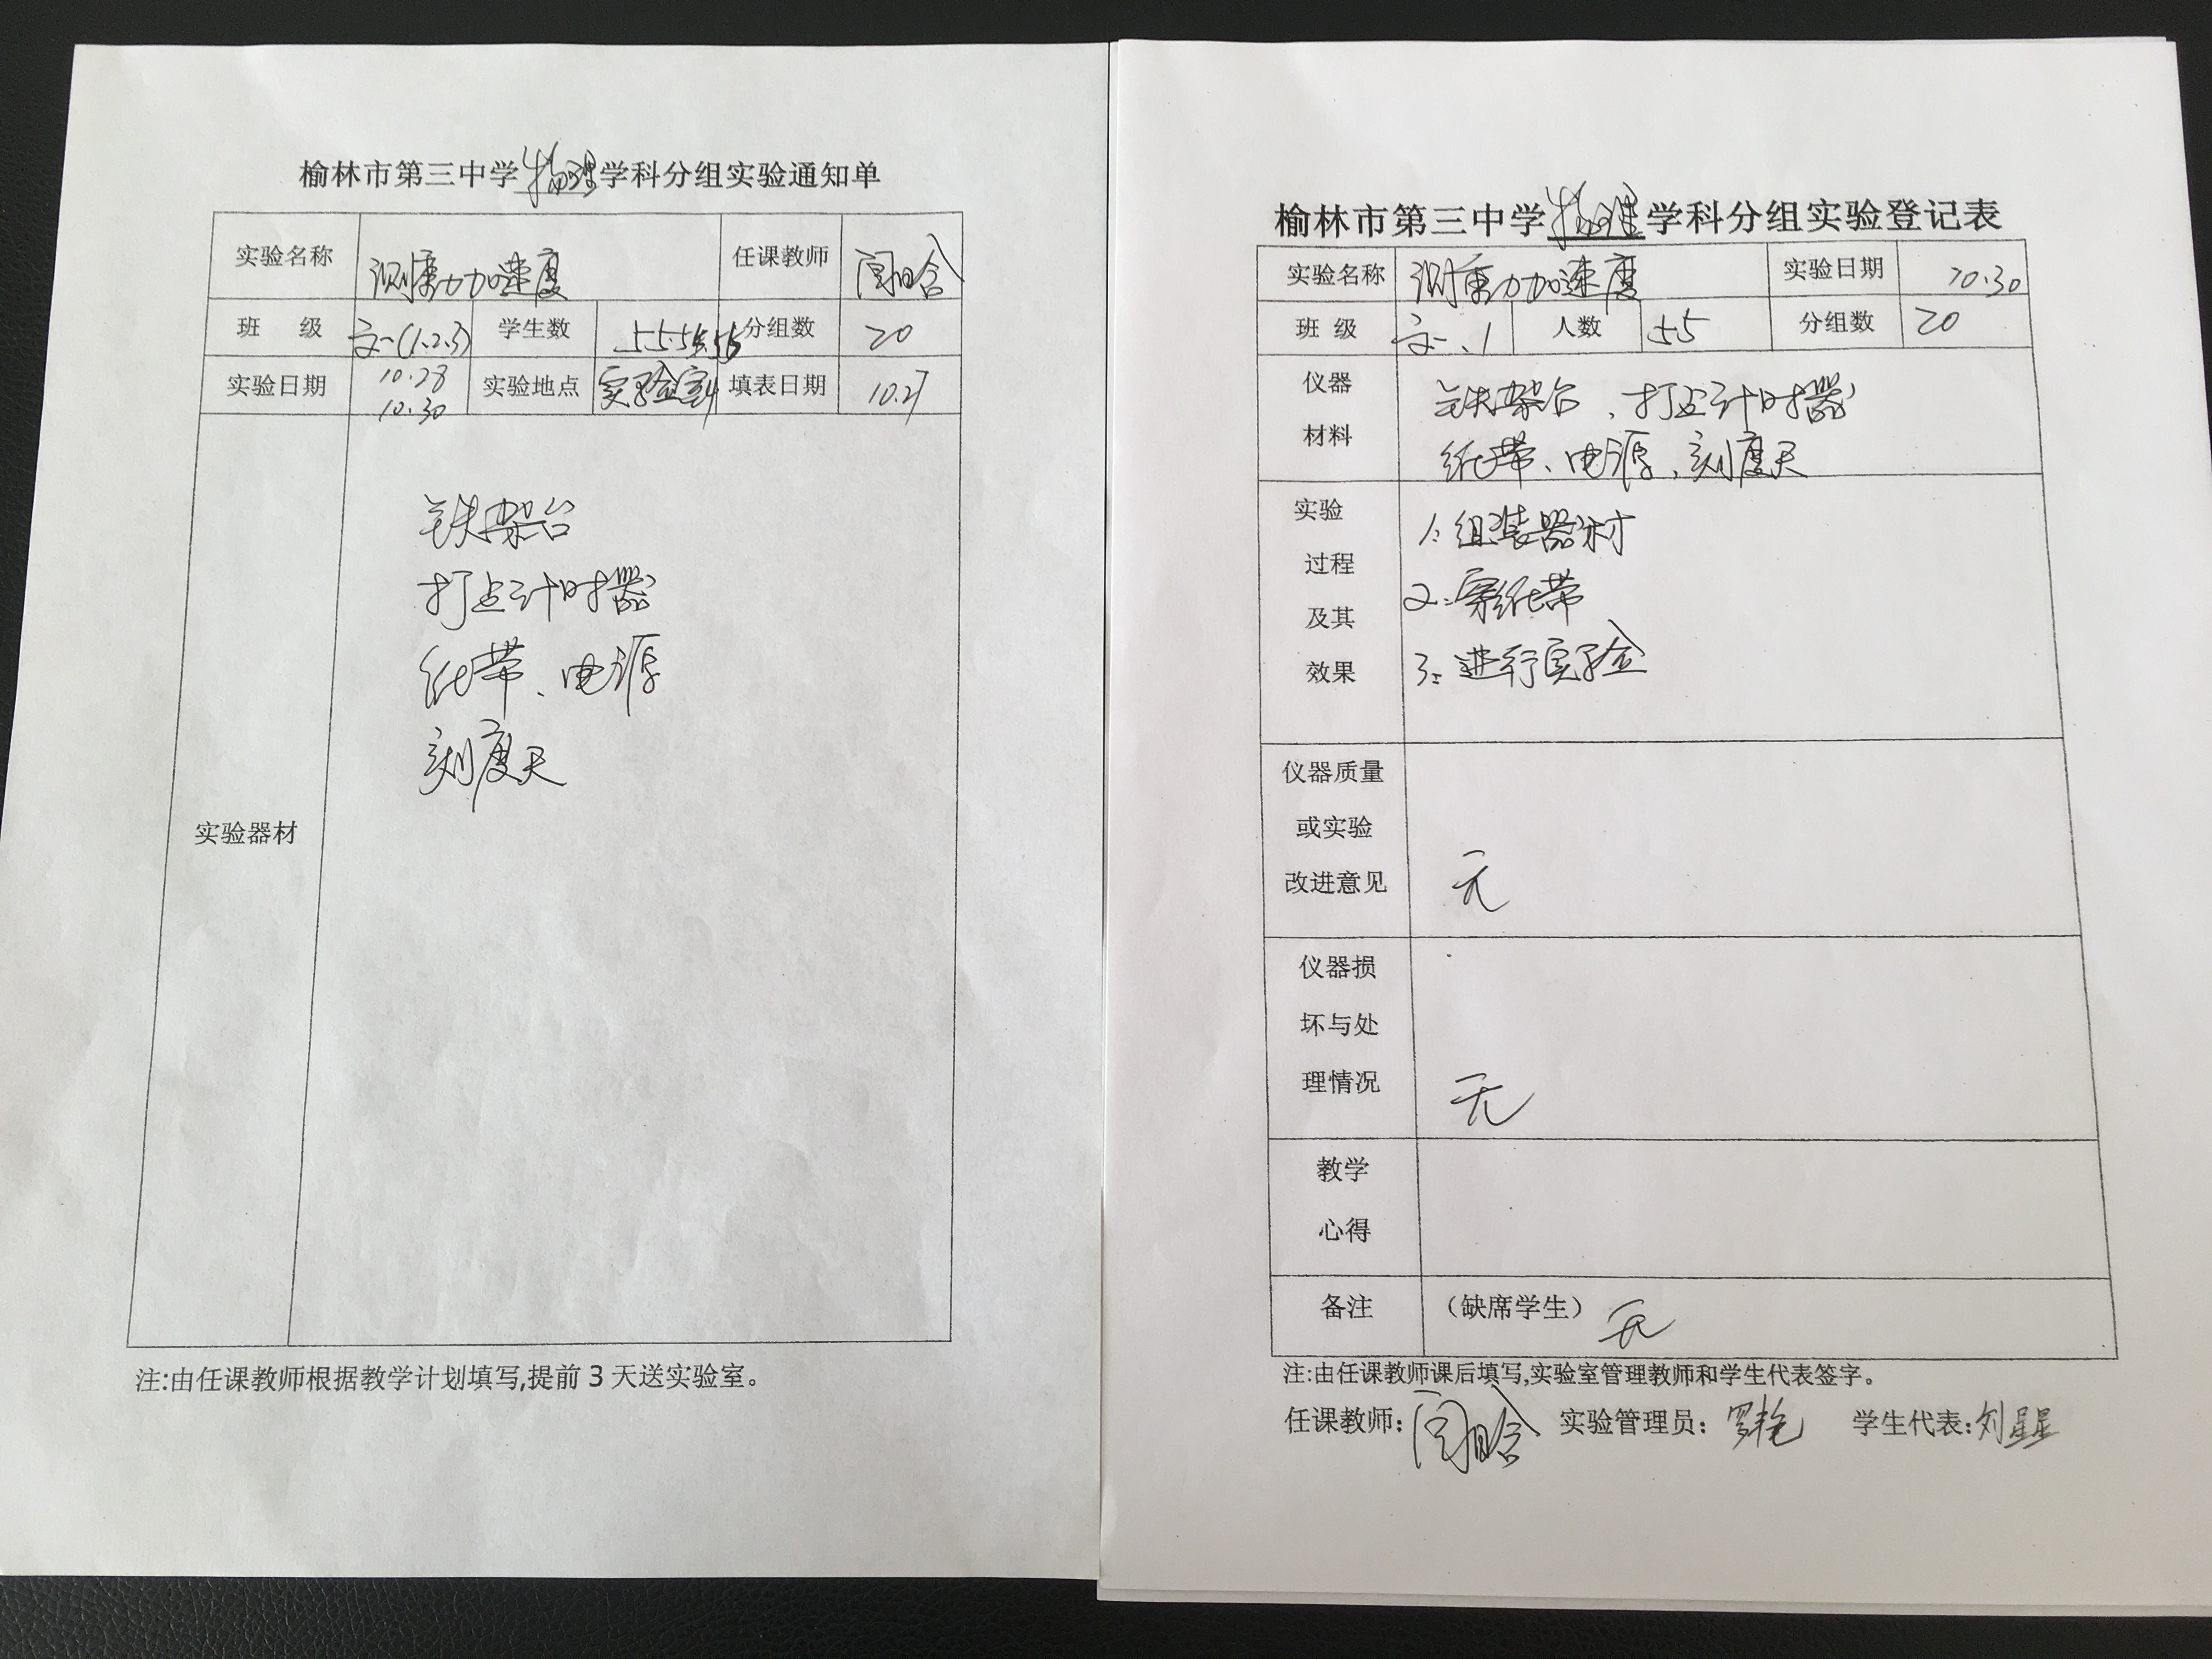 榆林市第三中学物理学科分组实验通知单
实验名称 测重力加速度 任课教师
班 级 文一(1.2.3) 学生数 55.55.55 分组数 20
实验日期 10.28 10.30 实验地点 实验室 填表日期 10.27
实验器材
铁架台
打点计时器
纸带、电源
刻度尺
注:由任课教师根据教学计划填写,提前3天送实验室。
榆林市第三中学物理学科分组实验登记表
实验名称 测重力加速度 实验日期 10.30
班 级 文一.1 人数 55 分组数 20
仪器材料
铁架台、打点计时器
纸带、电源、刻度尺
实验过程及其效果
1: 组装器材
2: 穿纸带
3: 进行实验
仪器质量
或实验
改进意见 无
仪器损
坏与处
理情况 无
教学
心得
备注 (缺席学生) 无
注:由任课教师课后填写,实验室管理教师和学生代表签字。
任课教师: 实验管理员: 罗艳 学生代表: 刘星星